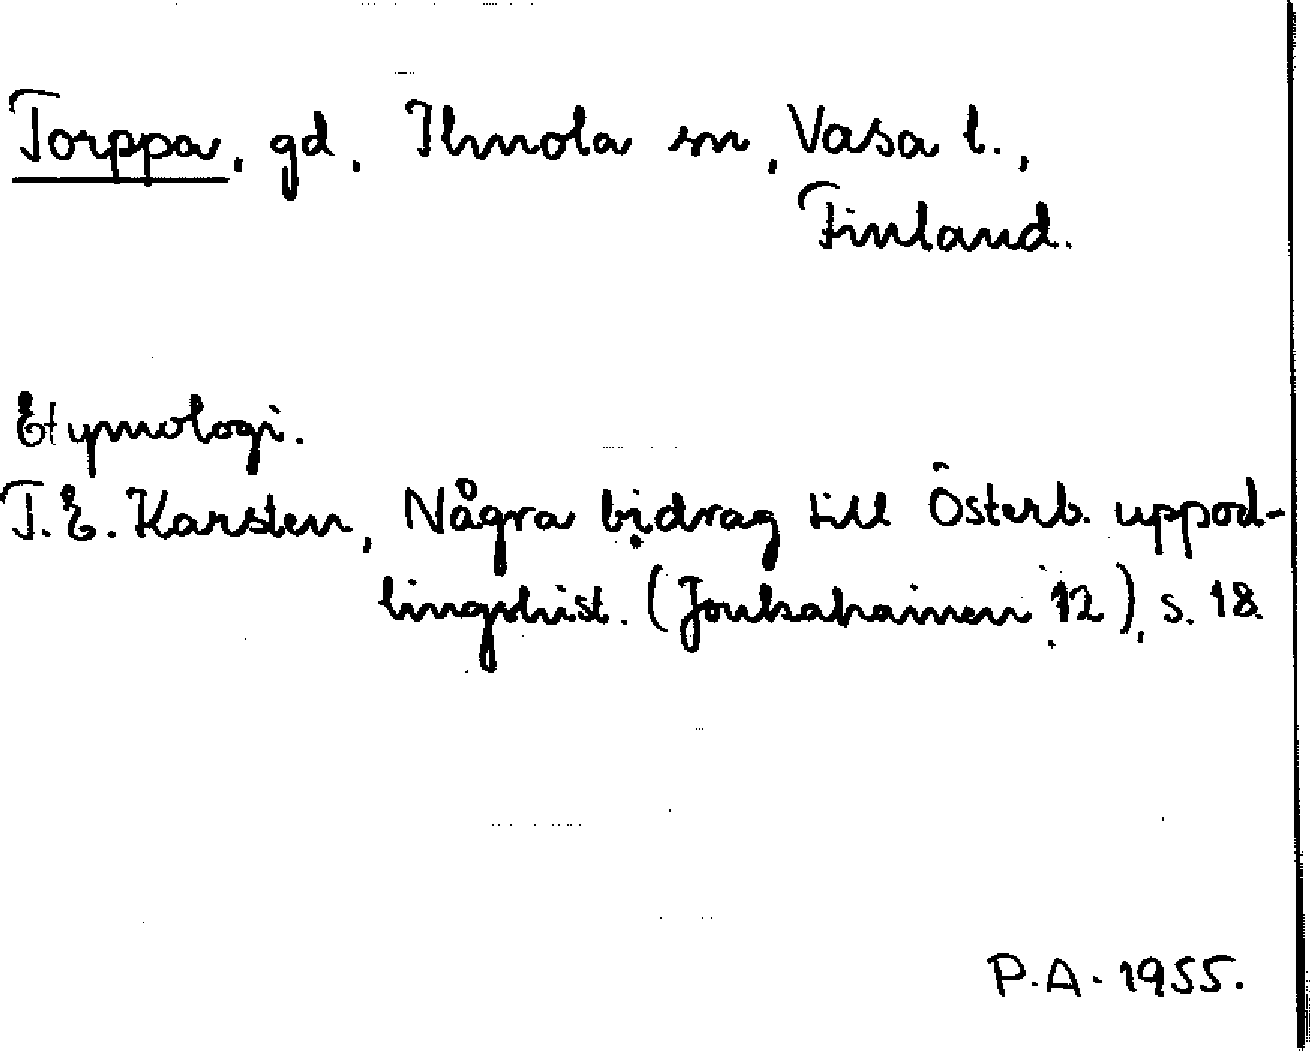 Torppa, gd, Ilmola sn, Vasa l.,
Finland.
Etymologi.
T.E. Karsten, Några bidrag till Österb. uppod-
lingshist. (Joukahainen 12), s. 18.
P.A. 1955.